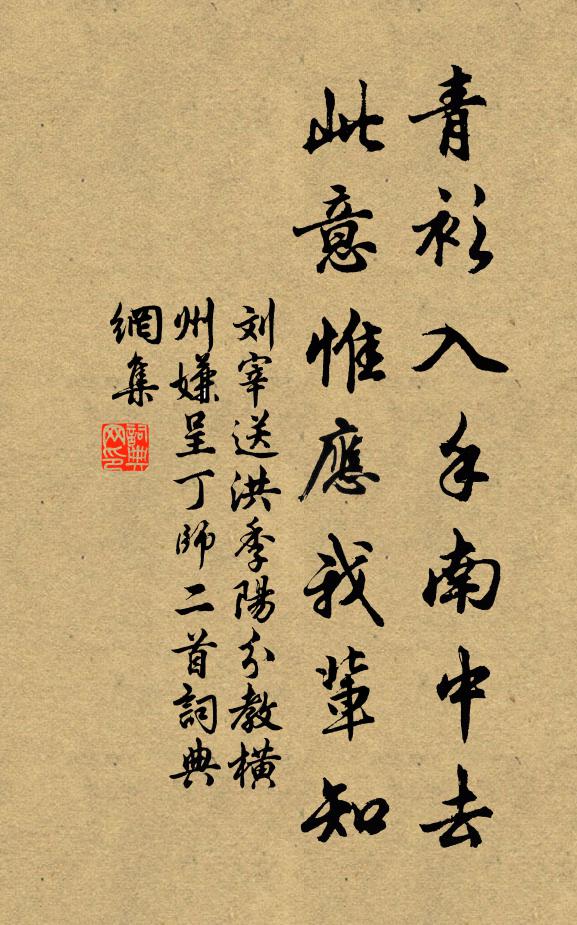 青衫入手南中去
此意惟應我輩知
刘宰送洪季陽分教橫
州嫌呈丁師二首詞典
網集
詞典网印